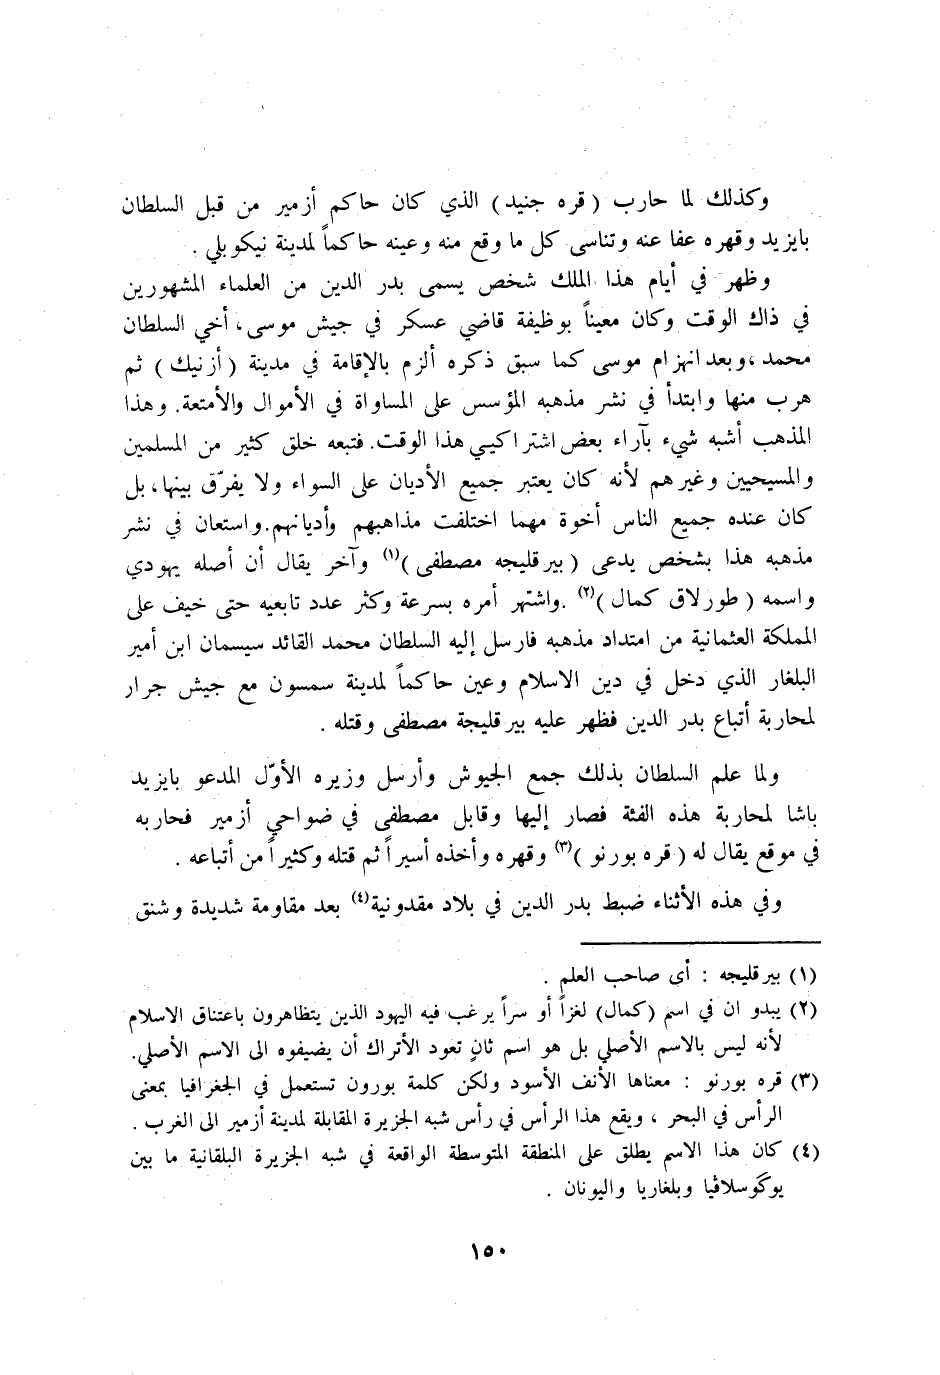 وكذلك لما حارب ( قره جنيد ) الذي كان حاكم أزمير من قبل السلطان
بايزيد وقهره عفا عنه وتناسى كل ما وقع منه وعينه حاكماً لمدينة نيكوبلي .
وظهر في أيام هذا الملك شخص يسمى بدر الدين من العلماء المشهورين
في ذاك الوقت وكان معيناً بوظيفة قاضي عسكر في جيش موسى، أخي السلطان
محمد ،وبعد انهزام موسى كما سبق ذكره ألزم بالإقامة في مدينة ( أزنيك ) ثم
هرب منها وابتدأ في نشر مذهبه المؤسس على المساواة في الأموال والأمتعة. وهذا
المذهب أشبه شيء بآراء بعض اشتراكيي هذا الوقت. فتبعه خلق كثير من المسلمين
والمسيحيين وغيرهم لأنه كان يعتبر جميع الأديان على السواء ولا يفرّق بينها، بل
كان عنده جميع الناس أخوة مهما اختلفت مذاهبهم وأديانهم.واستعان في نشر
مذهبه هذا بشخص يدعى ( بيرقليجه مصطفى )(١) وآخر يقال أن أصله يهودي
واسمه ( طورلاق كمال )(٢) .واشتهر أمره بسرعة وكثر عدد تابعيه حتى خيف على
المملكة العثمانية من امتداد مذهبه فارسل إليه السلطان محمد القائد سيسمان ابن أمير
البلغار الذي دخل في دين الاسلام وعين حاكماً لمدينة سمسون مع جيش جرار
لمحاربة أتباع بدر الدين فظهر عليه بيرقليجة مصطفى وقتله .
ولما علم السلطان بذلك جمع الجيوش وأرسل وزيره الأوّل المدعو بايزيد
باشا لمحاربة هذه الفئة فصار إليها وقابل مصطفى في ضواحي أزمير فحاربه
في موقع يقال له ( قره بورنو )(٣) وقهره وأخذه أسيراً ثم قتله وكثيراً من أتباعه .
وفي هذه الأثناء ضبط بدر الدين في بلاد مقدونية(٤) بعد مقاومة شديدة وشنق
(١) بيرقليجه : أى صاحب العلم .
(٢) يبدو ان في اسم (كمال) لغزاً أو سراً يرغب فيه اليهود الذين يتظاهرون باعتناق الاسلام
لأنه ليس بالاسم الأصلي بل هو اسم ثانٍ تعود الأتراك أن يضيفوه الى الاسم الأصلي.
(٣) قره بورنو : معناها الأنف الأسود ولكن كلمة بورون تستعمل في الجغرافيا بمعنى
الرأس في البحر ، ويقع هذا الرأس في رأس شبه الجزيرة المقابلة لمدينة أزمير الى الغرب .
(٤) كان هذا الاسم يطلق على المنطقة المتوسطة الواقعة في شبه الجزيرة البلقانية ما بين
يوگوسلاڤيا وبلغاريا واليونان .
١٥٠